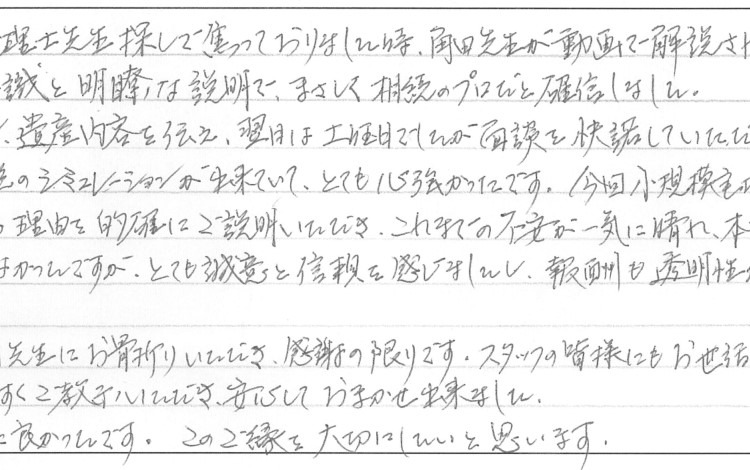 理士先生探しで焦っておりました時、角田先生が動画で解説され
識と明瞭な説明で、まさしく相続のプロだと確信しました。
、遺産内容を伝え、翌日は土曜日でしたが面談を快諾していただ
のシミュレーションが出来ていて、とても心強かったです。今回小規模宅
理由を的確にご説明いただき、これまでの不安が一気に晴れ、本
かったんですが、とても誠意と信頼を感じましたし、報酬も透明性
先生にお骨折りいただき、感謝の限りです。スタッフの皆様にもお世話
すくご教示いただき、安心しておまかせ出来ました。
に良かったです。このご縁を大切にしたいと思います。